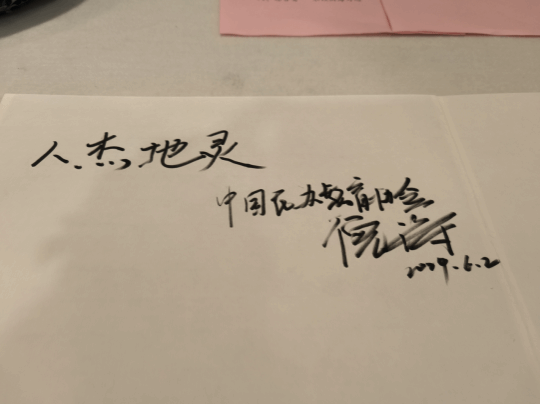 人杰地灵
中国民办教育协会
2009.6.2